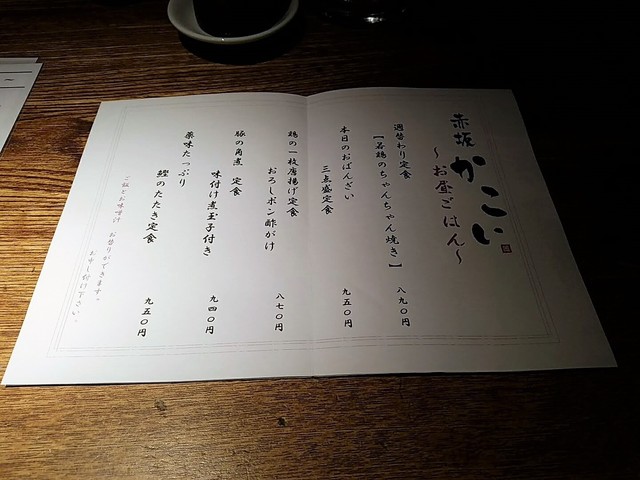 赤坂 かこい
～お昼ごはん～
週替わり定食
【若鶏のちゃんちゃん焼き】
八九〇円
本日のおばんざい
三点盛定食
九五〇円
鶏の一枚唐揚げ定食
おろしポン酢がけ
八七〇円
豚の角煮 定食
味付け煮玉子付き
九四〇円
薬味たっぷり
鰹のたたき定食
九五〇円
ご飯とお味噌汁 お替りができます。
お申し付け下さい。